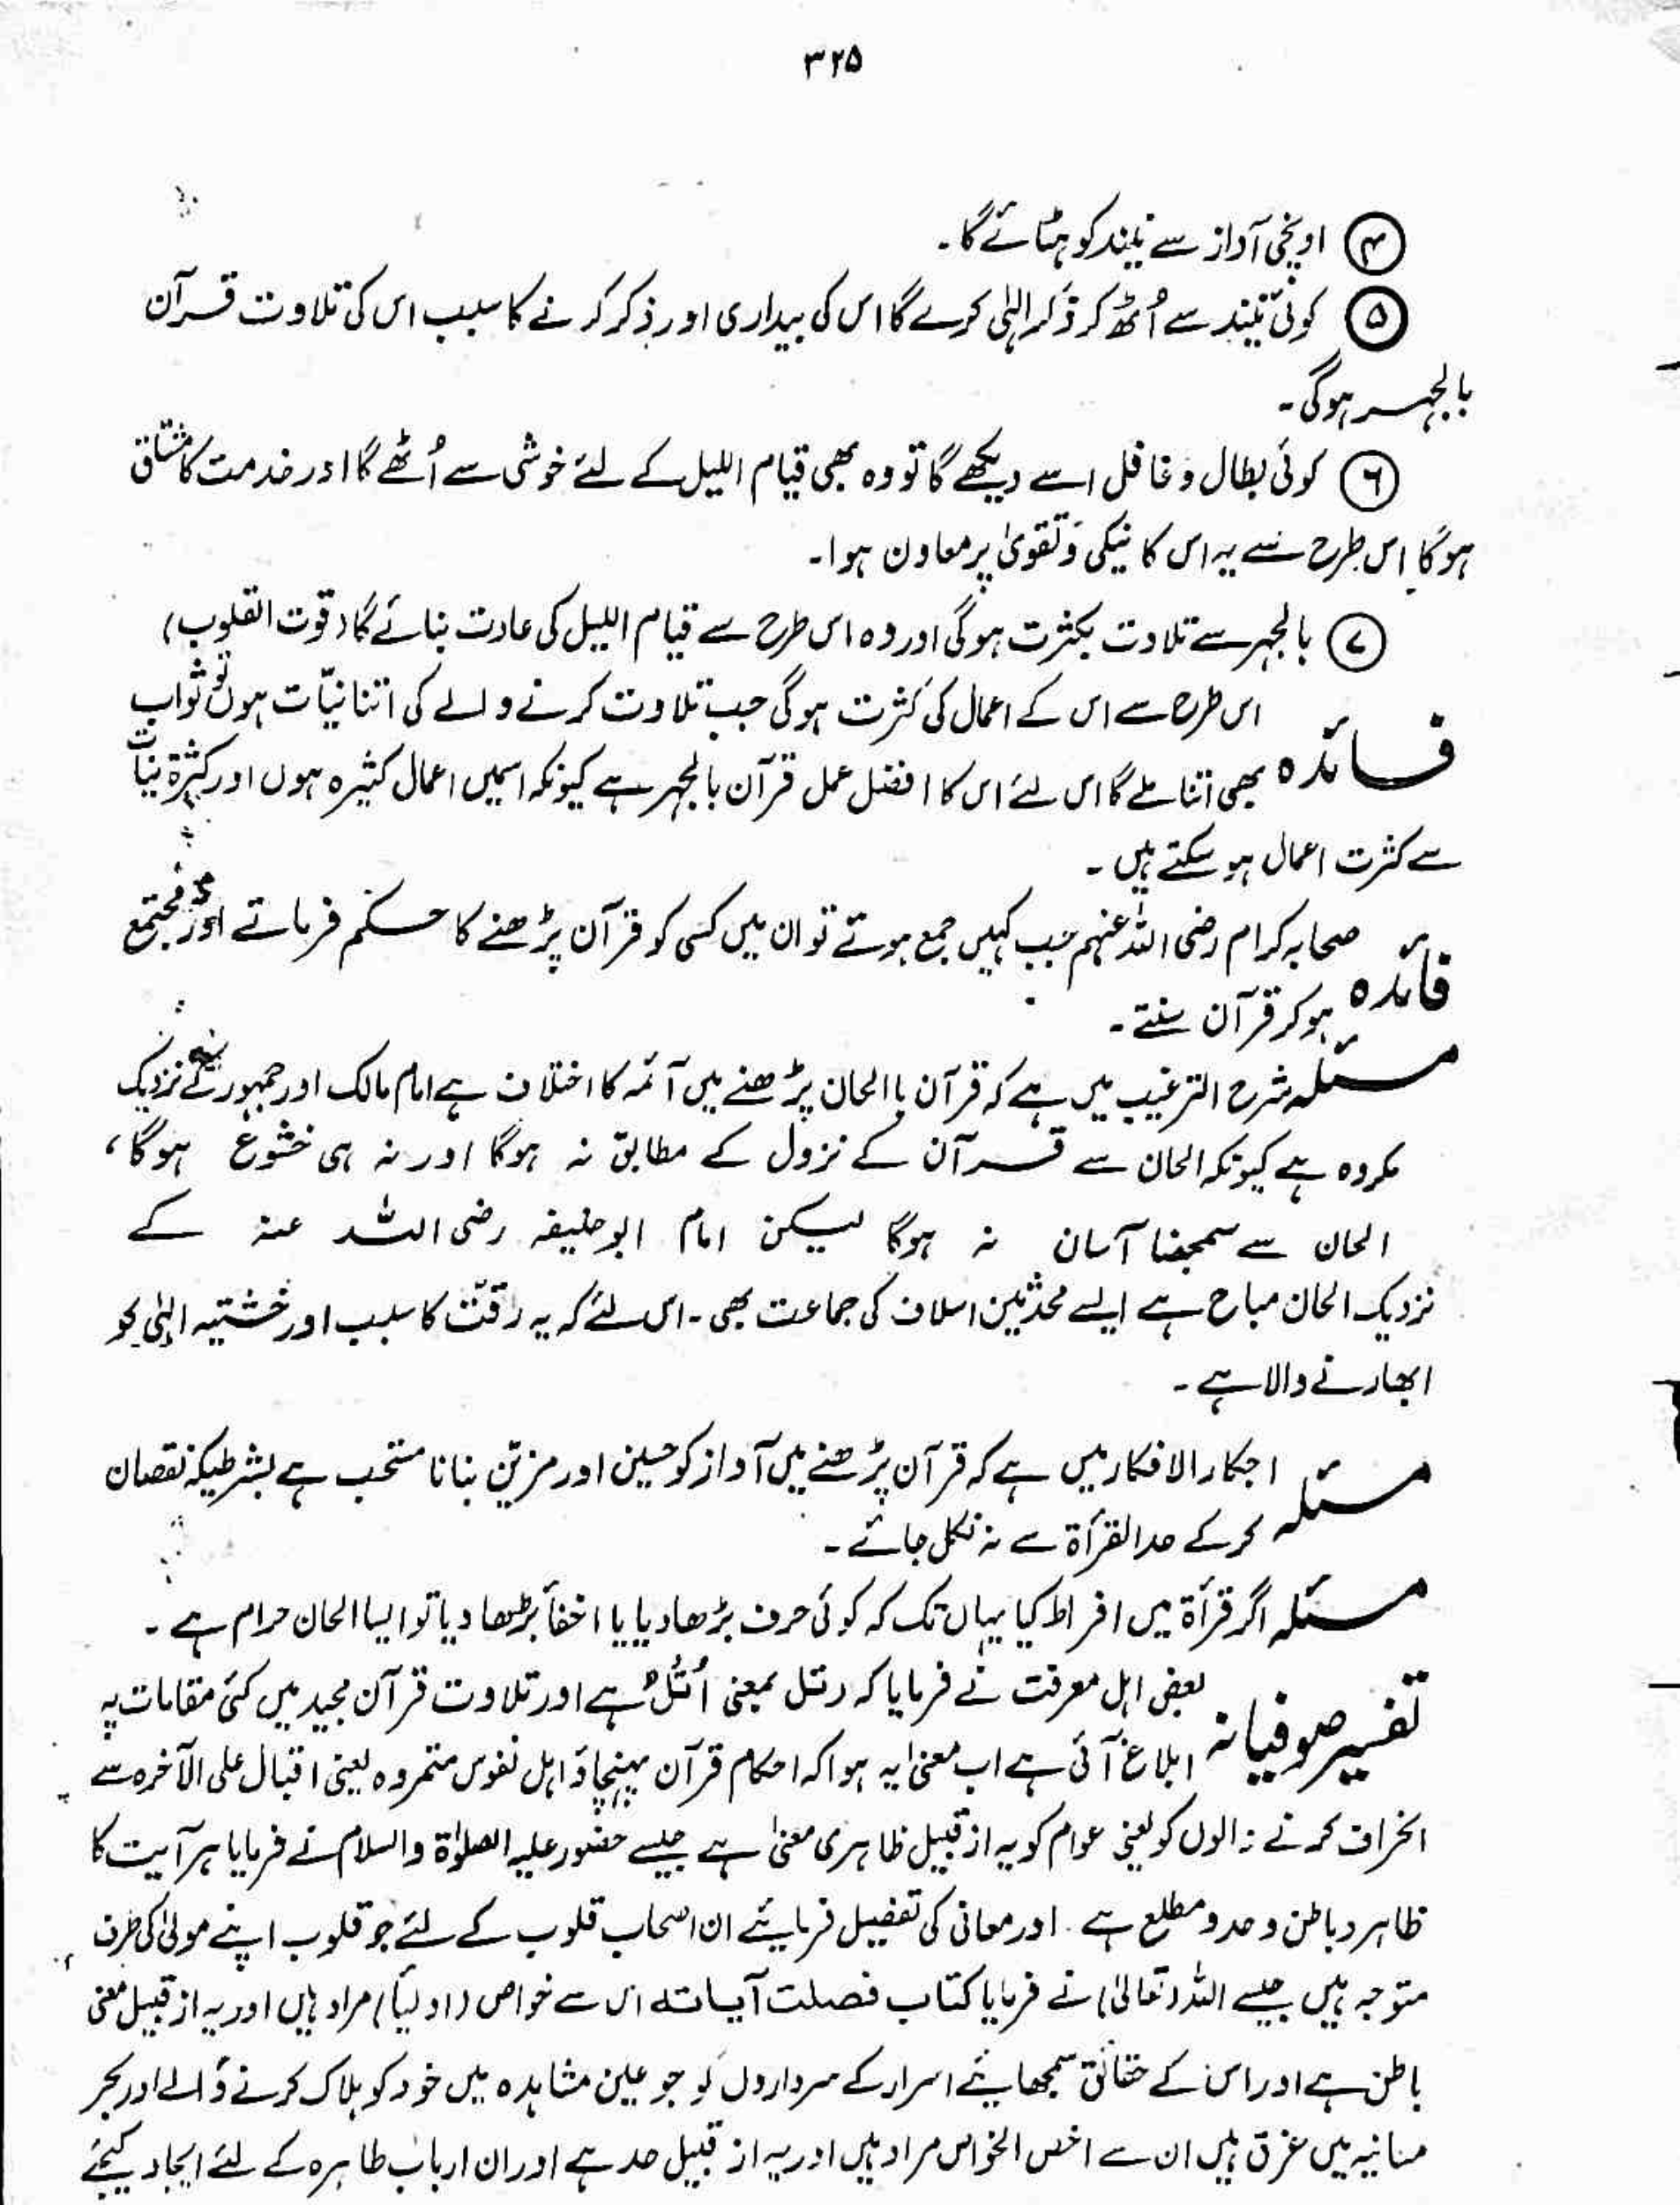 ۳۲۵
④ اونچی آواز سے نیند کو ہٹائے گا۔
⑤ کوئی نیند سے اُٹھ کر ذکر الٰہی کرے گا اس کی بیداری اور ذکر کرنے کا سبب اس کی تلاوت قرآن
بالجہر ہوگی۔
⑥ کوئی بطال و غافل اسے دیکھے گا تو وہ بھی قیام اللیل کے لئے خوشی سے اُٹھے گا اور خدمت کا مشتاق
ہوگا اس طرح سے یہ اس کا نیکی و تقویٰ پر معاون ہوا۔
⑦ بالجہر سے تلاوت بکثرت ہوگی اور وہ اس طرح سے قیام اللیل کی عادت بنائے گا (قوت القلوب)
فائدہ اس طرح سے اس کے اعمال کی کثرت ہوگی جب تلاوت کرنے والے کی اتنا نیّات ہوں تو ثواب
بھی اتنا ملے گا اس لئے اس کا افضل عمل قرآن بالجہر ہے کیونکہ اسمیں اعمال کثیرہ ہوں اور کثرۃ نیات
سے کثرت اعمال ہو سکتے ہیں۔
فائدہ صحابہ کرام رضی اللہ عنہم جب کہیں جمع ہوتے تو ان میں کسی کو قرآن پڑھنے کا حکم فرماتے اور مجتمع
ہو کر قرآن سنتے۔
مسئلہ شرح الترغیب میں ہے کہ قرآن باالحان پڑھنے میں آئمہ کا اختلاف ہے امام مالک اور جمہور کے نزدیک
مکروہ ہے کیونکہ الحان سے قرآن کے نزول کے مطابق نہ ہوگا اور نہ ہی خشوع ہوگا،
الحان سے سمجھنا آسان نہ ہوگا لیکن امام ابوحنیفہ رضی اللہ عنہ کے
نزدیک الحان مباح ہے ایسے محدثین اسلاف کی جماعت بھی۔ اس لئے کہ یہ رقّت کا سبب اور خشیتہ الٰہی کو
ابھارنے والا ہے۔
مسئلہ اجکار الافکار میں ہے کہ قرآن پڑھنے میں آواز کو حسین اور مزیّن بنانا مستحب ہے بشرطیکہ نقصان
کرکے حدالقرأۃ سے نہ نکل جائے۔
مسئلہ اگر قرأۃ میں افراط کیا یہاں تک کہ کوئی حرف بڑھا دیا یا اخفأ بڑھا دیا تو ایسا الحان حرام ہے۔
تفسیر صوفیانہ بعض اہل معرفت نے فرمایا کہ رتل بمعنی اُتْلُ ہے اور تلاوت قرآن مجید میں کئی مقامات پہ
ابلاغ آئی ہے اب معنیٰ یہ ہوا کہ احکام قرآن پہنچاؤ اہل نفوس متمردہ یعنی اقبال علی الآخرہ سے
انحراف کرنے والوں کو یعنی عوام کو یہ از قبیل ظاہری معنیٰ ہے جیسے حضور علیہ الصلوٰۃ والسلام نے فرمایا ہر آیت کا
ظاہر و باطن و حد و مطلع ہے۔ اور معانی کی تفصیل فرمایئے ان اصحاب قلوب کے لئے جو قلوب اپنے مولیٰ کی طرف
متوجہ ہیں جیسے اللہ (تعالیٰ) نے فرمایا کتاب فصلت آیاتہ اس سے خواص (اولیأ) مراد ہیں اور یہ از قبیل معنی
باطن ہے اور اس کے حقائق سمجھایئے اسرار کے سرداروں کو جو عین مشاہدہ میں خود کو ہلاک کرنے والے اور بحر
منانیہ میں غرق ہیں ان سے اخص الخواص مراد ہیں اور یہ از قبیل حد ہے اور ان ارباب طاہرہ کے لئے ایجاد کیجئے